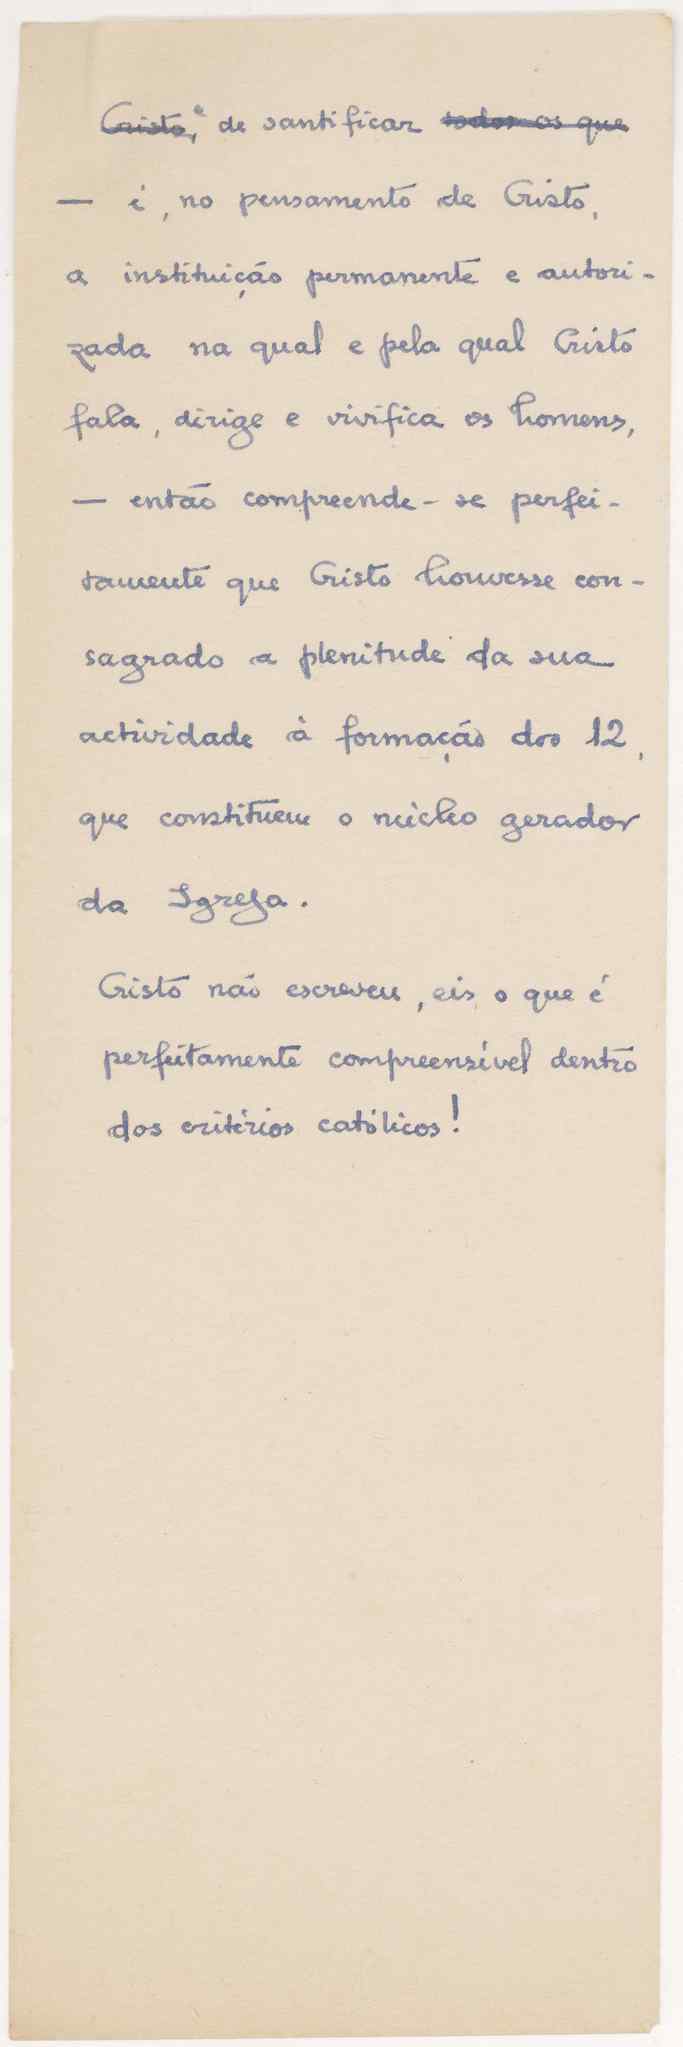 Cristo, e de santificar todos os que
— é, no pensamento de Cristo,
a instituição permanente e autori-
zada na qual e pela qual Cristo
fala, dirige e vivifica os homens,
— então compreende-se perfei-
tamente que Cristo houvesse con-
sagrado a plenitude da sua
actividade à formação dos 12,
que constituem o núcleo gerador
da Igreja.
Cristo não escreveu, eis o que é
perfeitamente compreensível dentro
dos critérios católicos!